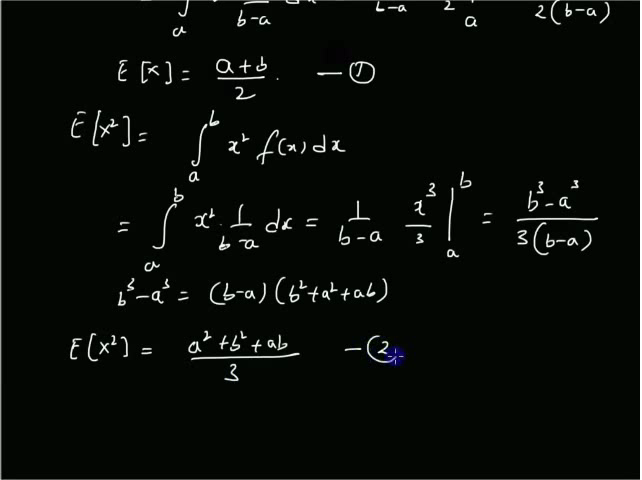 ∫ₐ b-a b-a 2 a 2(b-a)
E[x] = (a+b)/2 . — ①
E[x²] = ∫ₐᵇ x² f(x) dx
= ∫ₐᵇ x² · 1/(b-a) dx = 1/(b-a) x³/3 |ₐᵇ = (b³-a³)/(3(b-a))
b³-a³ = (b-a)(b²+a²+ab)
E[x²] = (a²+b²+ab)/3 — ②